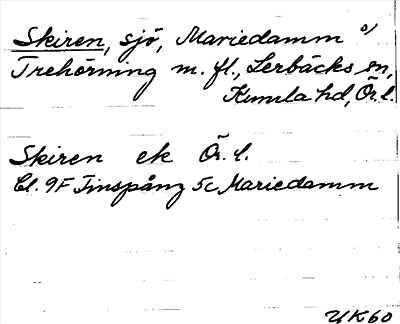 Skiren, sjö, Mariedamm o)
Trehörning m. fl., Lerbäcks sn,
Kumla hd, Ör. l.
Skiren ek Ör. l.
Bl. 9F Finspång 5c Mariedamm
UK60